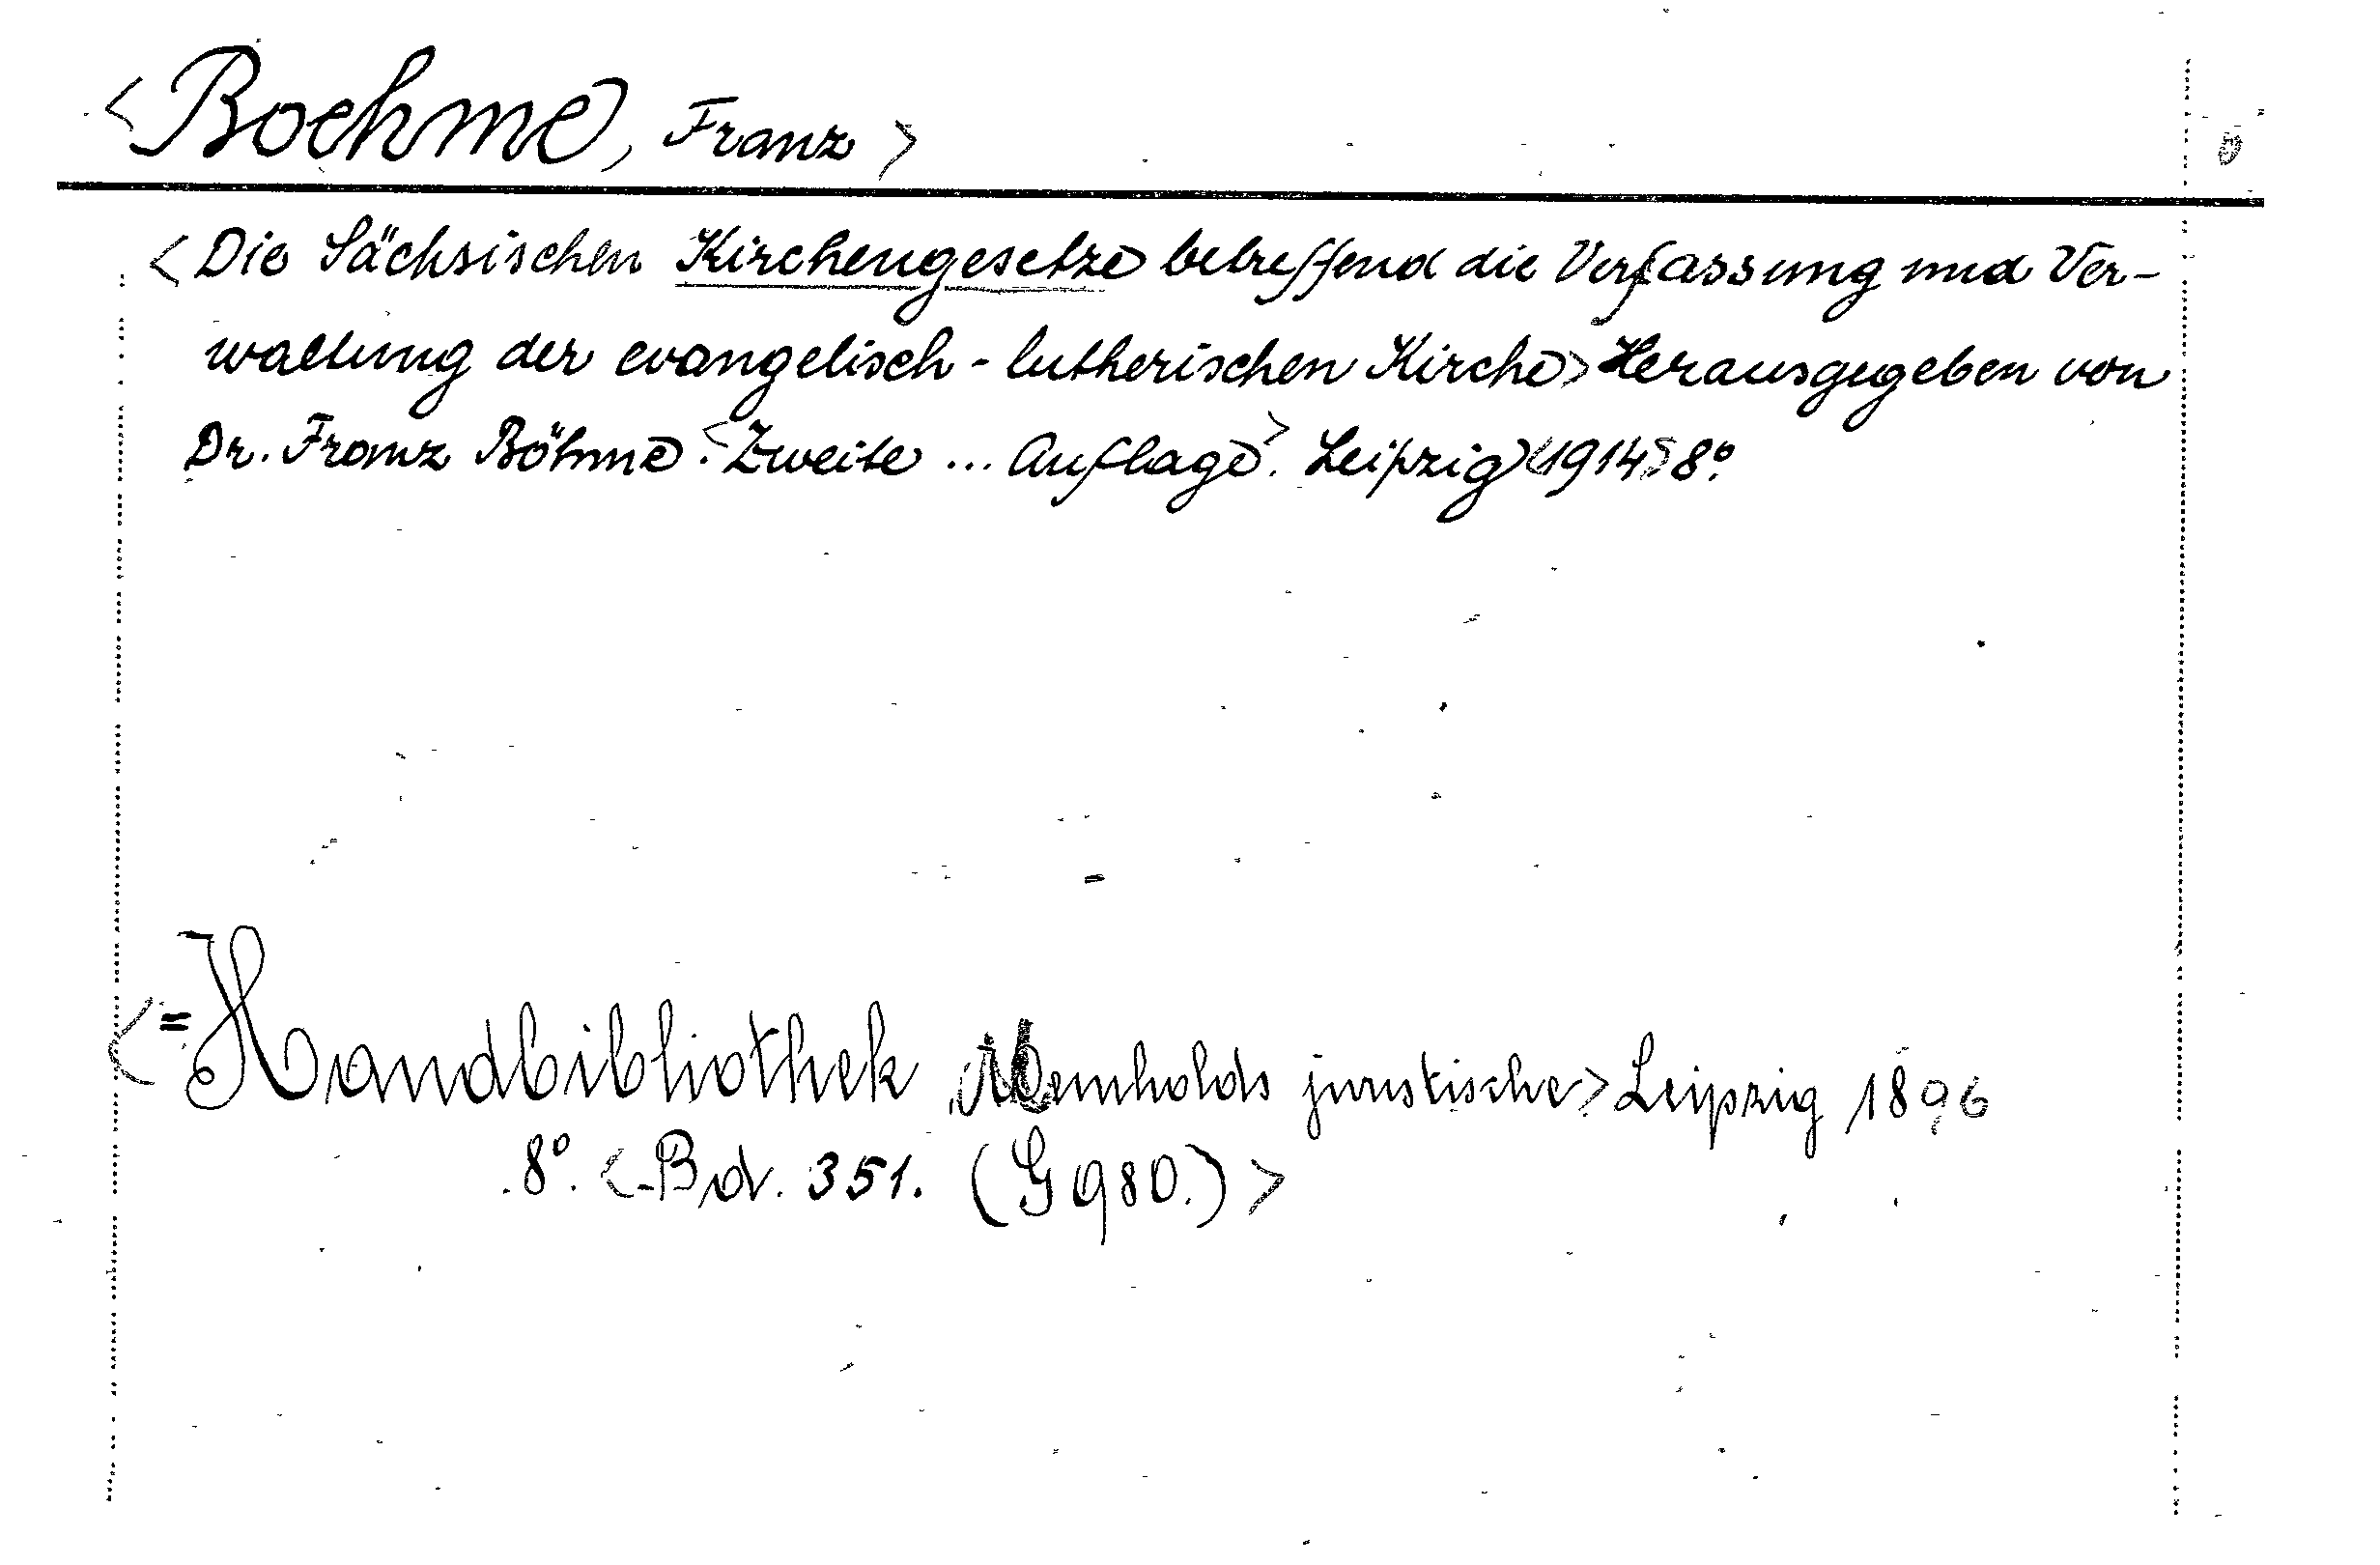 <Boehme, Franz>
<Die Sächsischen Kirchengesetze betreffend die Verfassung und Ver-
waltung der evangelisch-lutherischen Kirche> Herausgegeben von
Dr. Franz Böhme. <Zweite ... Auflage>. Leipzig <1914> 8º.
<=Handbibliothek, Meinholds juristische> Leipzig 1896
8º. <Bd. 351. (G 980.)>